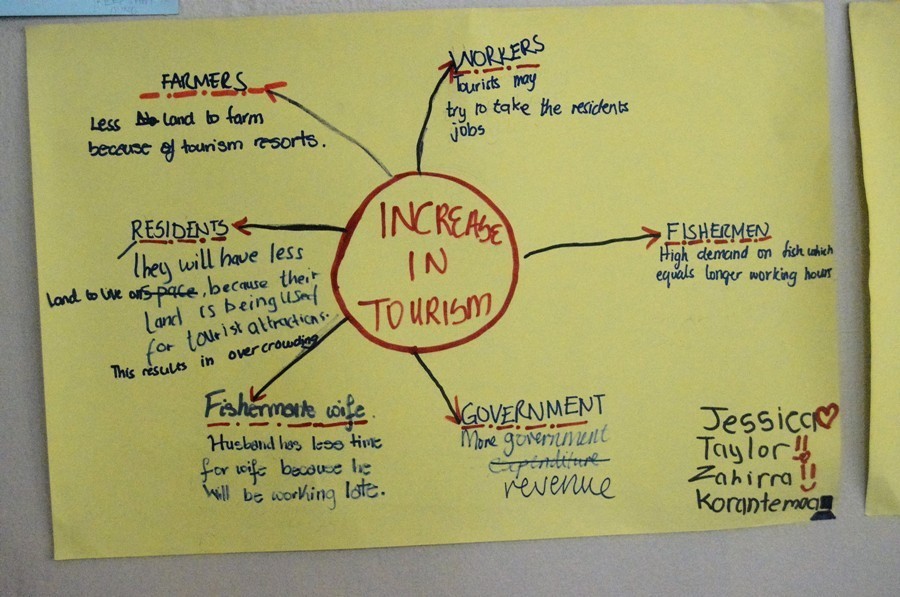 FARMERS
Less land to farm
because of tourism resorts.
WORKERS
Tourists may
try to take the residents
jobs
INCREASE
IN
TOURISM
RESIDENTS
They will have less
land to live on space, because their
land is being used
for tourist attractions.
This results in overcrowding
FISHERMEN
High demand on fish which
equals longer working hours
Fisherman's wife
Husband has less time
for wife because he
will be working late.
GOVERNMENT
More government
expenditure
revenue
Jessica
Taylor!!
Zahirra!!
Korantemaa